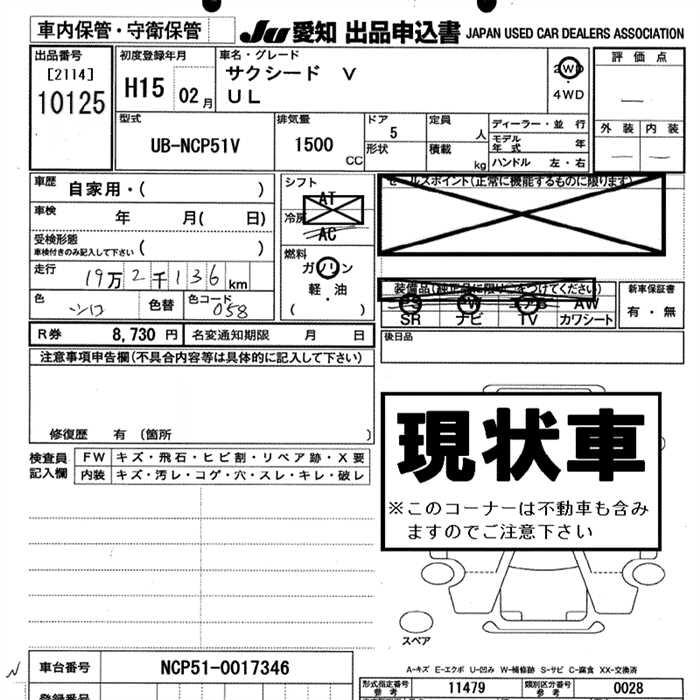 車内保管・守衛保管
JU 愛知 出品申込書 JAPAN USED CAR DEALERS ASSOCIATION
出品番号
[2114]
10125
初度登録年月
H15 02月
車名・グレード
サクシード V
UL
2WD
・
4WD
評価点
外装 内装
型式
UB-NCP51V
排気量
1500
CC
ドア
5
形状
定員
人
積載
kg
ディーラー・並行
モデル年式 年
ハンドル 左・右
車歴 自家用・( )
車検 年 月( 日)
受検形態
車検付きのみ記入して下さい ( )
走行 19万2千136km
色 シロ 色替 色コード 058
シフト
AT
冷房
AC
燃料
ガソリン
・
軽・油
( )
セールスポイント(正常に機能するものに限ります)
装備品(純正品に限り○をつけてください)
AW
SR ナビ TV カワシート
新車保証書
有・無
後日品
R券 8,730円 名変通知期限 月 日
注意事項申告欄(不具合内容等は具体的に記入して下さい)
修復歴 有 (箇所 )
現状車
※このコーナーは不動車も含み
ますのでご注意下さい
検査員記入欄
FW キズ・飛石・ヒビ割・リペア跡・X要
内装 キズ・汚レ・コゲ・穴・スレ・キレ・破レ
スペア
A-キズ E-エクボ U-凹み W-補修跡 S-サビ C-腐食 XX-交換済
車台番号 NCP51-0017346
型式指定番号
参考
11479
類別区分番号
参考
0028
登録番号